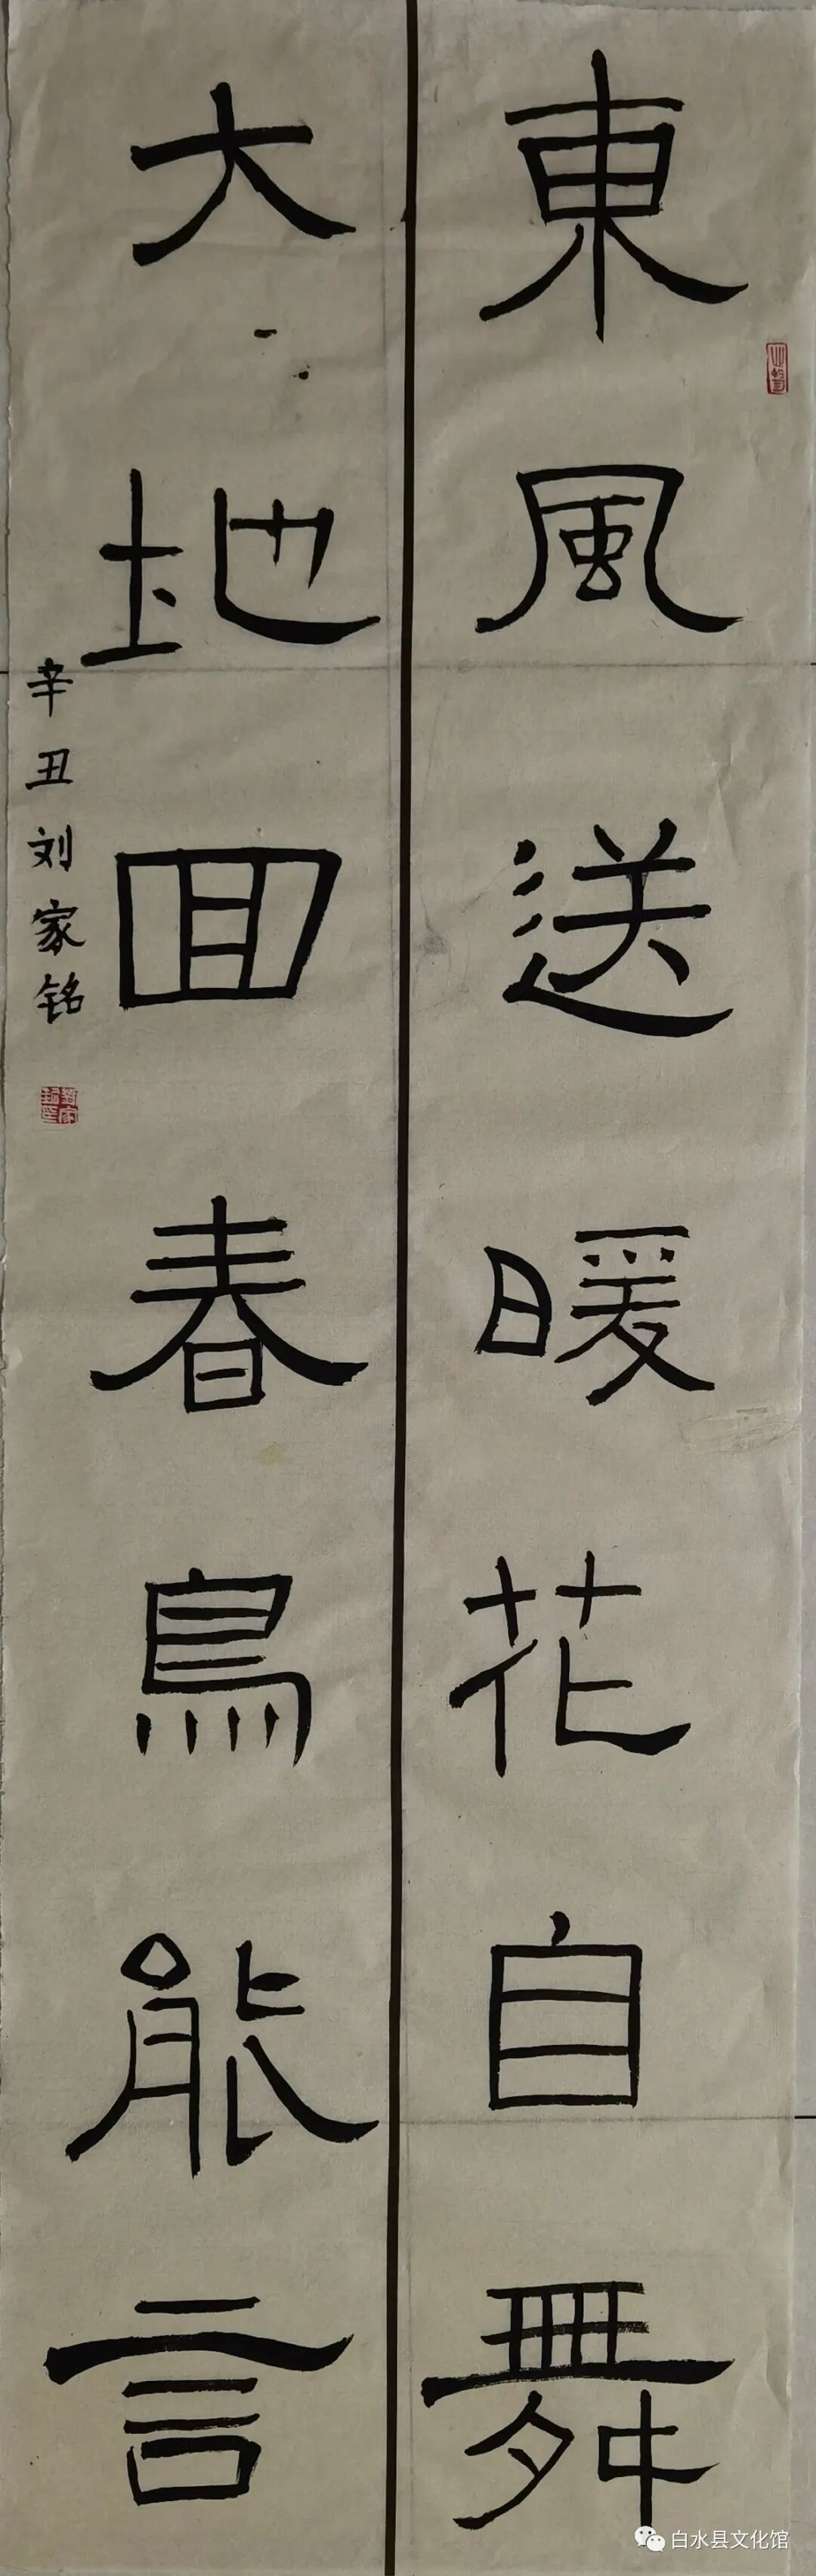 東風送暖花自舞
大地回春鳥能言
辛丑刘家铭
白水县文化馆